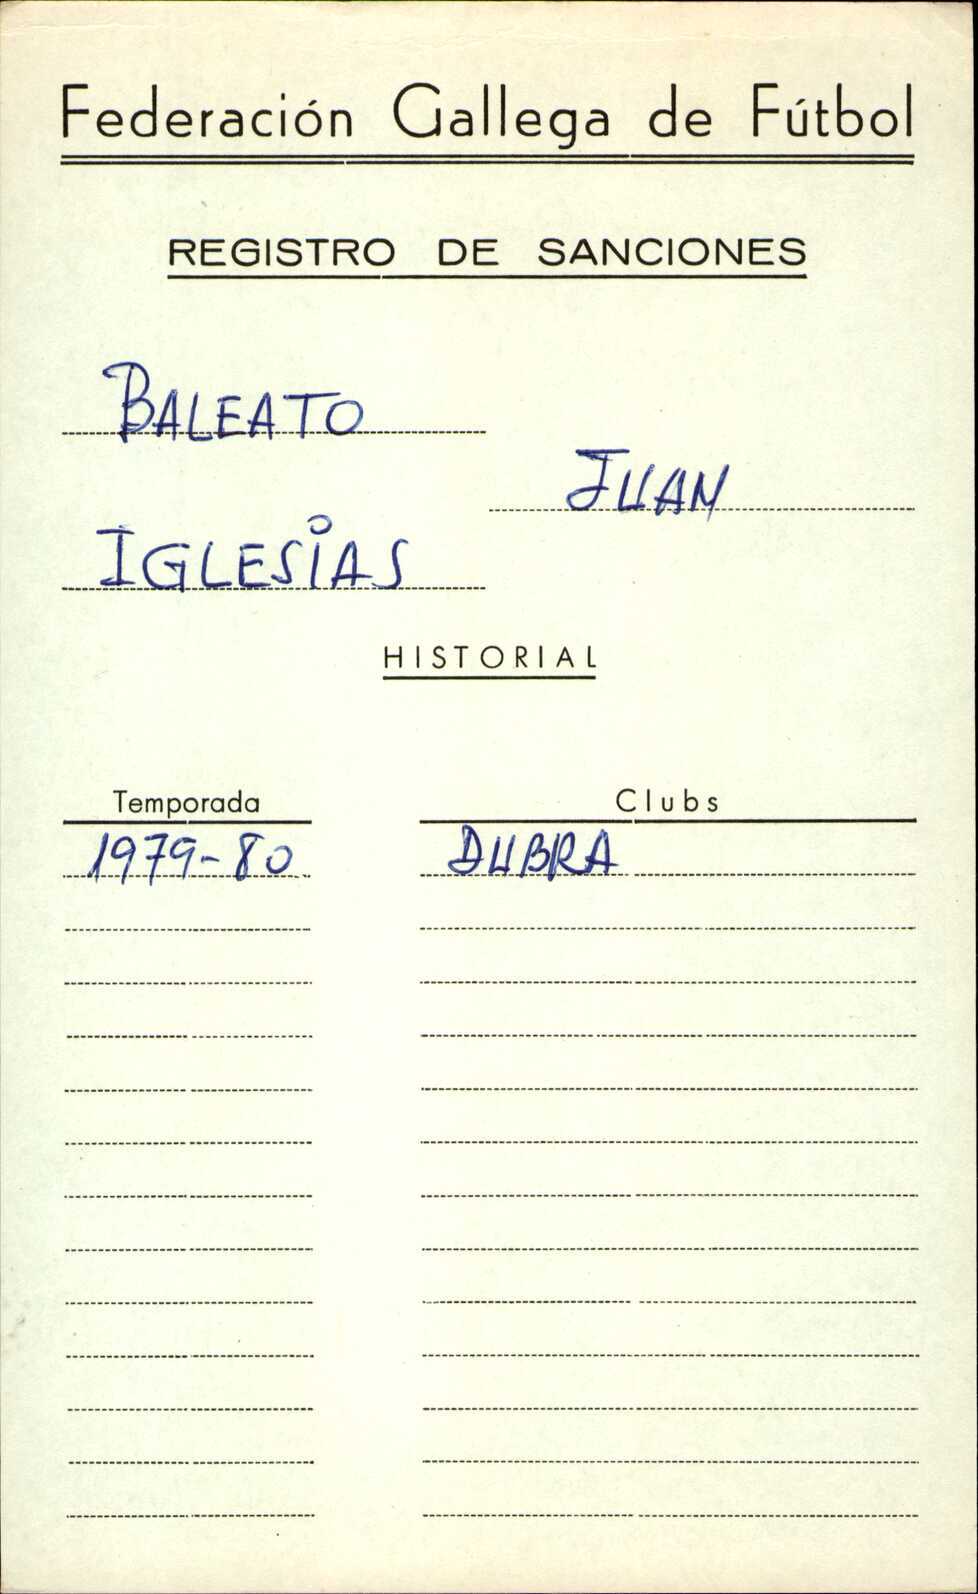 Federación Gallega de Fútbol
REGISTRO DE SANCIONES
BALEATO
JUAN
IGLESIAS
HISTORIAL
Temporada Clubs
1979-80 DUBRA